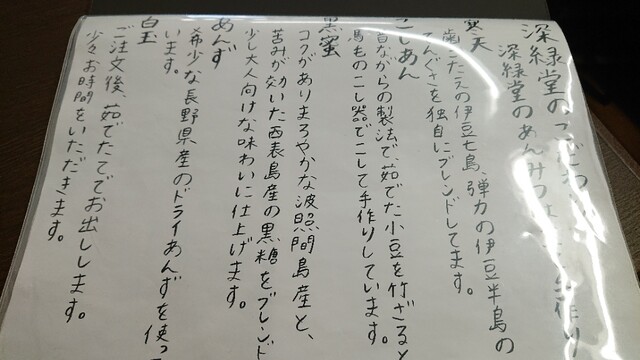 深緑堂のこだわり
深緑堂のあんみつは 手作り
寒天
歯ごたえの伊豆七島、弾力の伊豆半島の
てんぐさを独自にブレンドしてます。
こしあん
昔ながらの製法で、茹でた小豆を竹ざると
馬毛のこし器でこして手作りしています。
黒蜜
コクがありまろやかな波照間島産と、
苦みが効いた西表島産の黒糖をブレンド
少し大人向けな味わいに仕上げます。
あんず
希少な長野県産のドライあんずを使っ
います。
白玉
ご注文後、茹でたてでお出しします。
少々お時間をいただきます。